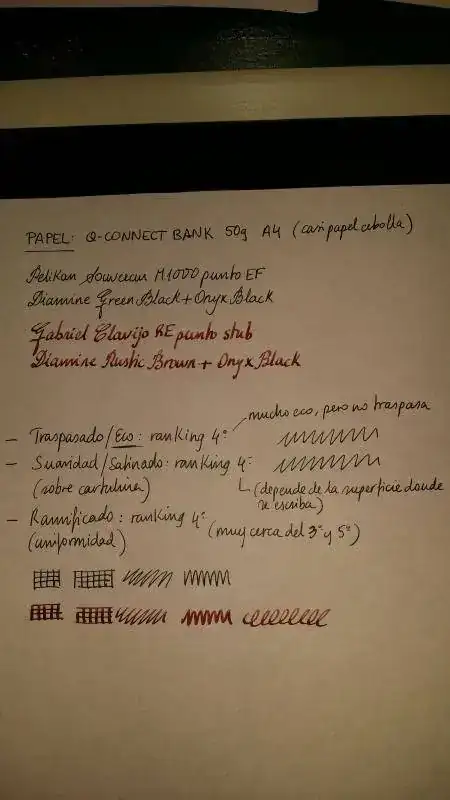 PAPEL: Q-CONNECT BANK 50g A4 (casi papel cebolla)
Pelikan Souverän M1000 punto EF
Diamine Green Black + Onyx Black
Gabriel Clavijo RE punto stub
Diamine Rustic Brown + Onyx Black
mucho eco, pero no traspasa
- Traspasado/Eco: ranking 4º
- Suavidad/Satinado: ranking 4º
(sobre cartulina)
(depende de la superficie donde
se escriba)
- Ramificado: ranking 4º
(uniformidad)
(muy cerca del 3º y 5º)